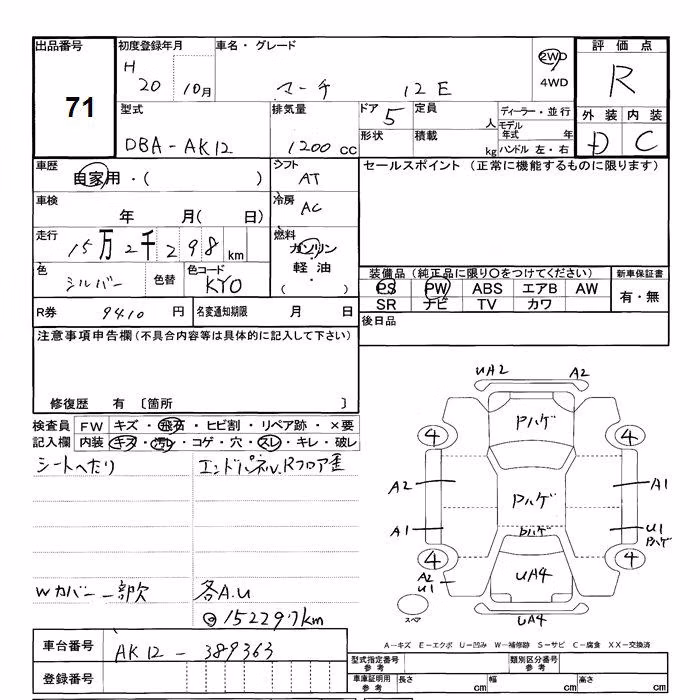 出品番号
71
初度登録年月
H 20 10月
車名・グレード
マーチ 12E
2WD
4WD
評価点
R
外装 内装
D C
型式
DBA-AK12
排気量
1200 cc
ドア 5
形状
定員 人
積載 kg
ディーラー・並行
モデル年式 年
ハンドル 左・右
車歴
自家用・( )
シフト
AT
セールスポイント (正常に機能するものに限ります)
車検
年 月( 日)
冷房
AC
走行
15万2千298 km
燃料
ガソリン
軽油
( )
色
シルバー
色替
色コード
KY0
装備品 (純正品に限り〇をつけてください)
PS PW ABS エアB AW
SR ナビ TV カワ
新車保証書
有・無
R券 9410 円
名変通知期限 月 日
後日品
注意事項申告欄 (不具合内容等は具体的に記入して下さい)
修復歴 有 〔箇所 〕
検査員 FW キズ・飛石・ヒビ割・リペア跡・×要
記入欄 内装 キズ・汚レ・コゲ・穴・スレ・キレ・破レ
シートへたり
エンドパネル、Rフロア歪
Wカバー一部欠
各A.U
◎152297km
UA2 A2
Pハゲ
4 4
A2 Pハゲ A1
A1 Pハゲ U1
Bハゲ
4 4
A2
U1
UA4
スペア
UA4
車台番号
AK12-389363
登録番号
A-キズ E-エクボ U-凹み W-補修跡 S-サビ C-腐食 XX-交換済
型式指定番号 参考
類別区分番号 参考
車庫証明用 参考
長さ cm 幅 cm 高さ cm